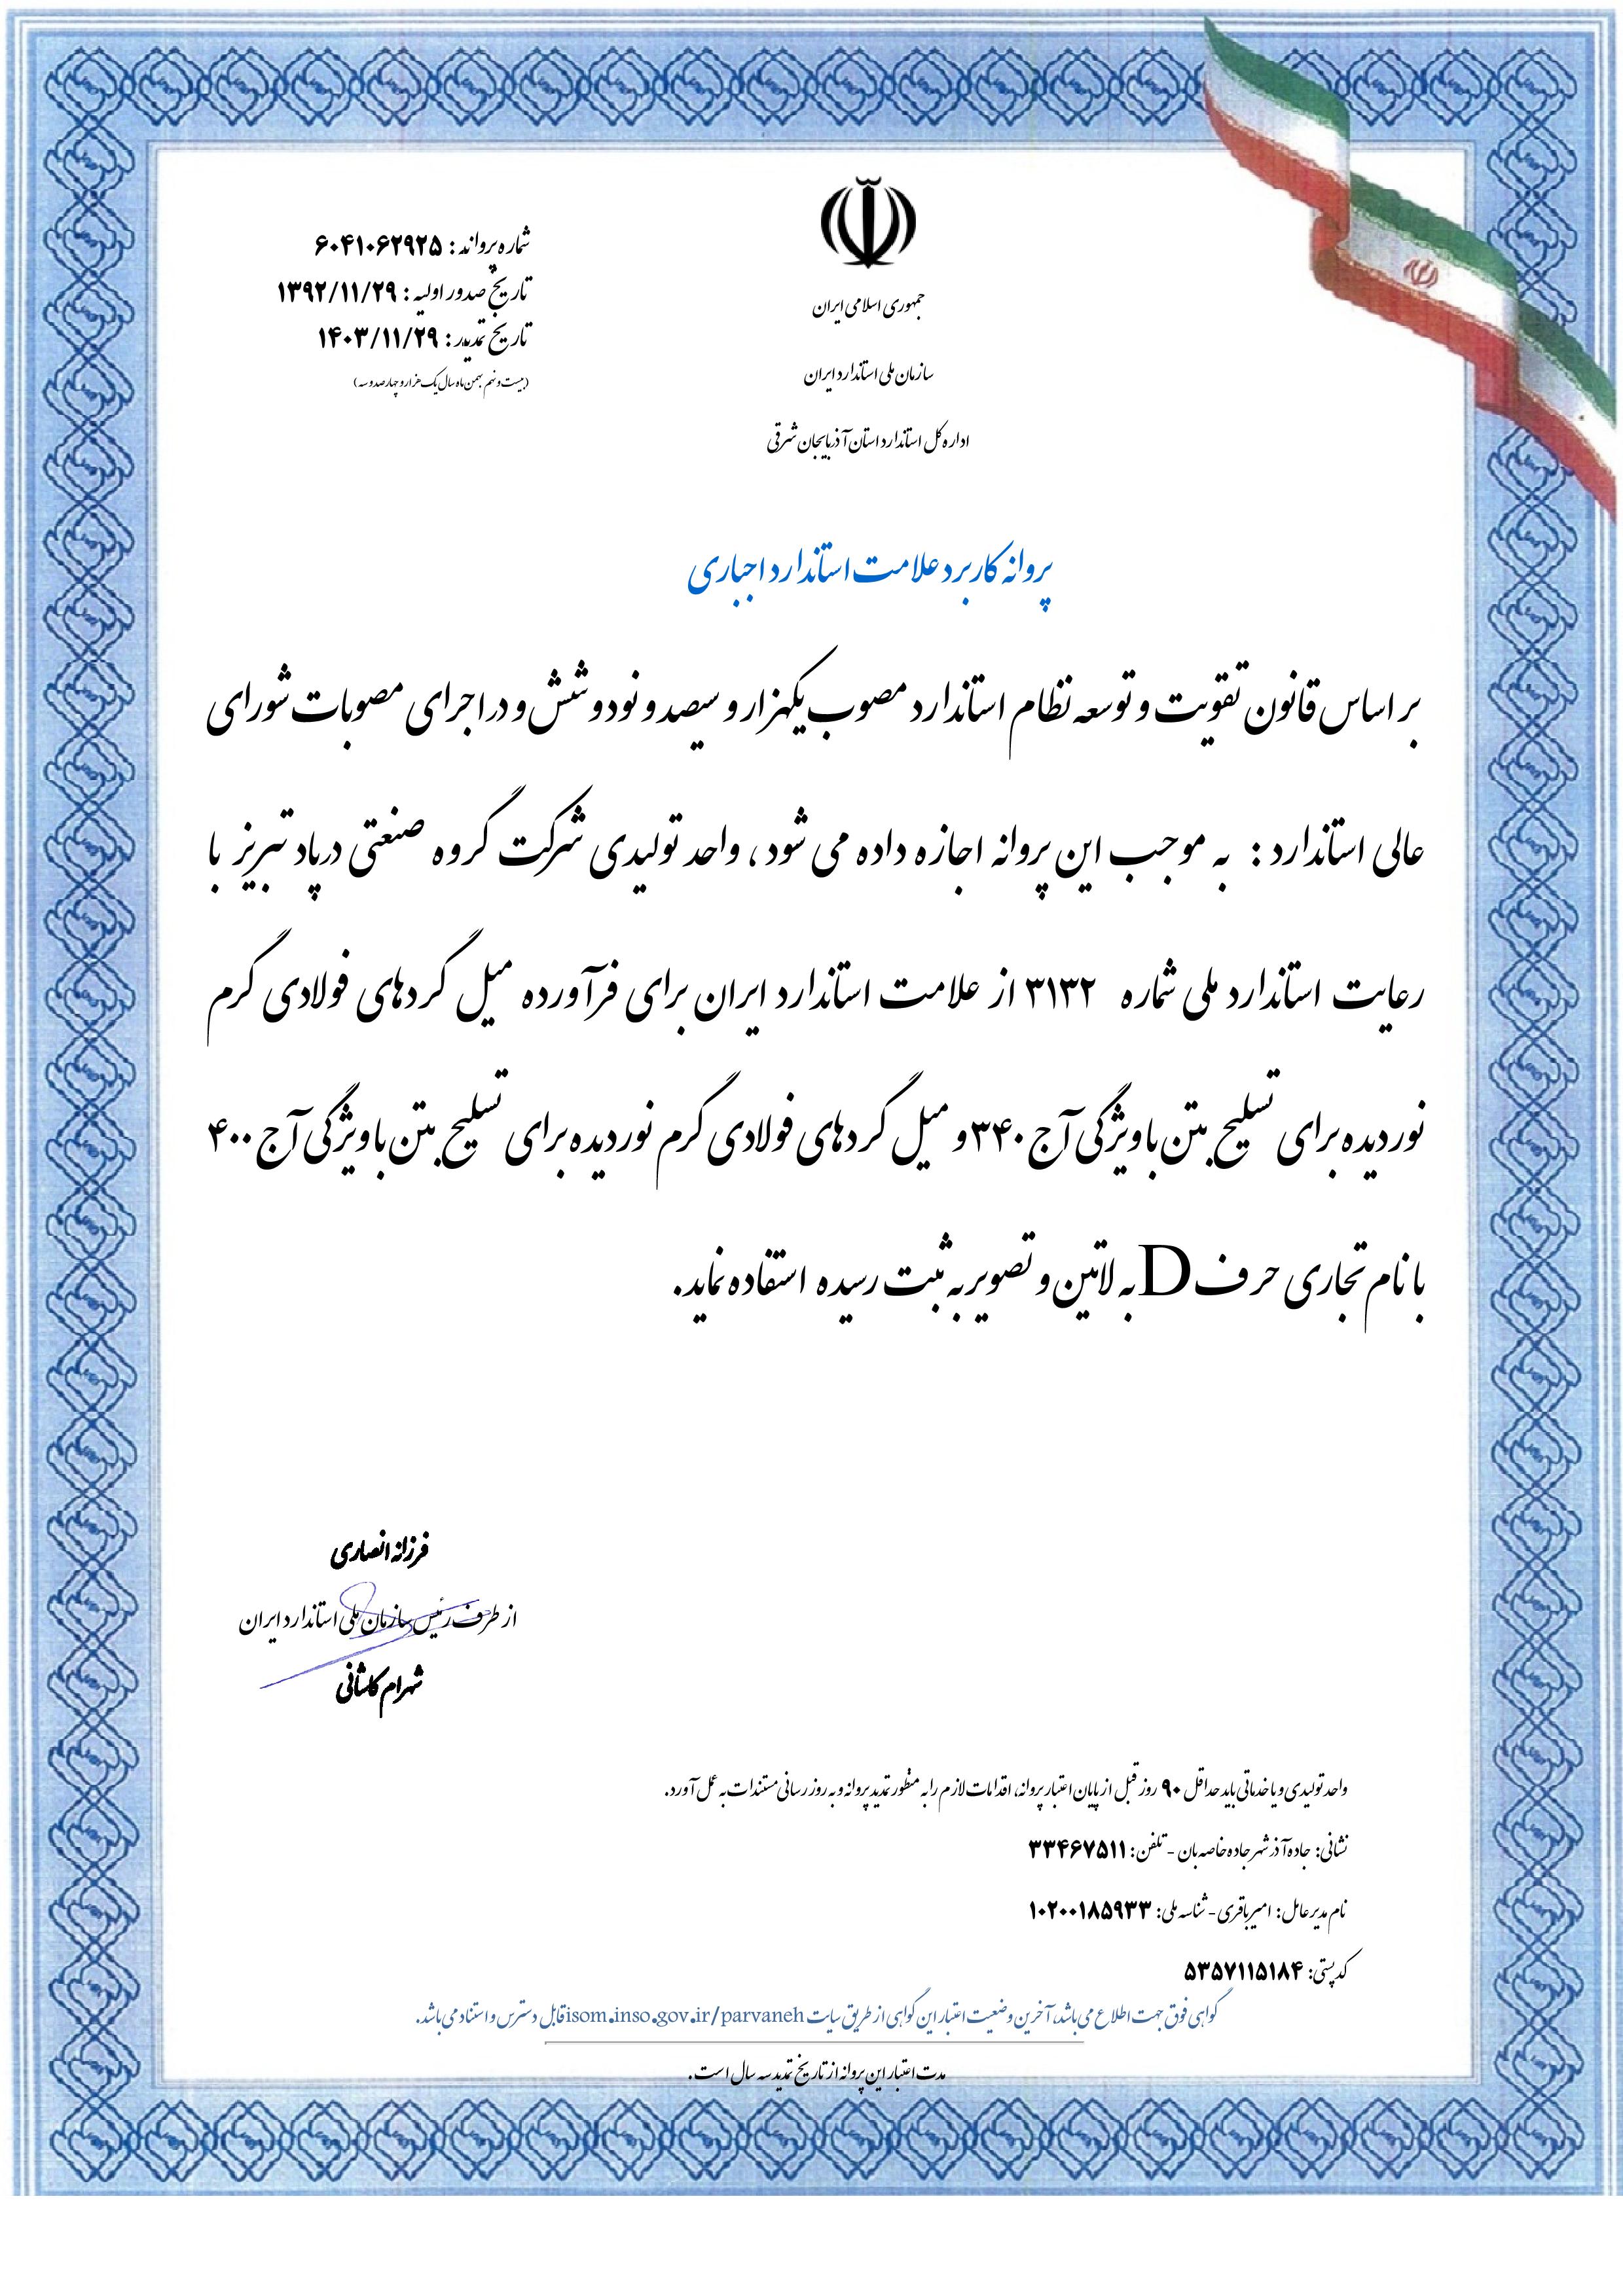 جمهوری اسلامی ایران
سازمان ملی استاندارد ایران
اداره کل استاندارد استان آذربایجان شرقی
شماره پروانه : ۶۰۴۱۰۶۲۹۲۵
تاریخ صدور اولیه : ۱۳۹۲/۱۱/۲۹
تاریخ تمدید : ۱۴۰۳/۱۱/۲۹
(بیست و نهم بهمن ماه سال یک هزار و چهارصد و سه)
پروانه کاربرد علامت استاندارد اجباری
بر اساس قانون تقویت و توسعه نظام استاندارد مصوب یکهزار و سیصد و نود و شش و در اجرای مصوبات شورای
عالی استاندارد : به موجب این پروانه اجازه داده می شود ، واحد تولیدی شرکت گروه صنعتی درپاد تبریز با
رعایت استاندارد ملی شماره ۳۱۳۲ از علامت استاندارد ایران برای فرآورده میل گردهای فولادی گرم
نوردیده برای تسلیح بتن با ویژگی آج ۳۴۰ و میل گردهای فولادی گرم نوردیده برای تسلیح بتن با ویژگی آج ۴۰۰
با نام تجاری حرف D به لاتین و تصویر به ثبت رسیده استفاده نماید.
فرزانه انصاری
از طرف رئیس سازمان ملی استاندارد ایران
شهرام کاشانی
واحد تولیدی و یا خدماتی باید حداقل ۹۰ روز قبل از پایان اعتبار پروانه، اقدامات لازم را به منظور تمدید پروانه و به روز رسانی مستندات به عمل آورد.
نشانی: جاده آذرشهر جاده خاصه بان - تلفن: ۳۳۴۶۷۵۱۱
نام مدیرعامل: امیر باقری - شناسه ملی: ۱۰۲۰۰۱۸۵۹۳۳
کد پستی: ۵۳۵۷۱۱۵۱۸۴
گواهی فوق جهت اطلاع می باشد، آخرین وضعیت اعتبار این گواهی از طریق سایت isom.inso.gov.ir/parvaneh قابل دسترس و استناد می باشد.
مدت اعتبار این پروانه از تاریخ تمدید سه سال است.